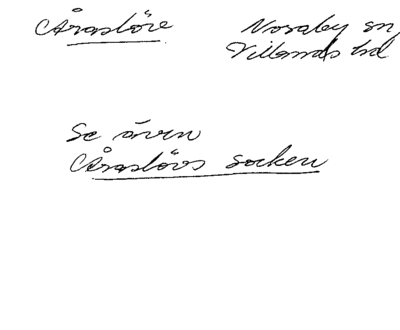 Åraslöv
Nosaby sn,
Villands hd
Se även
Åraslövs socken